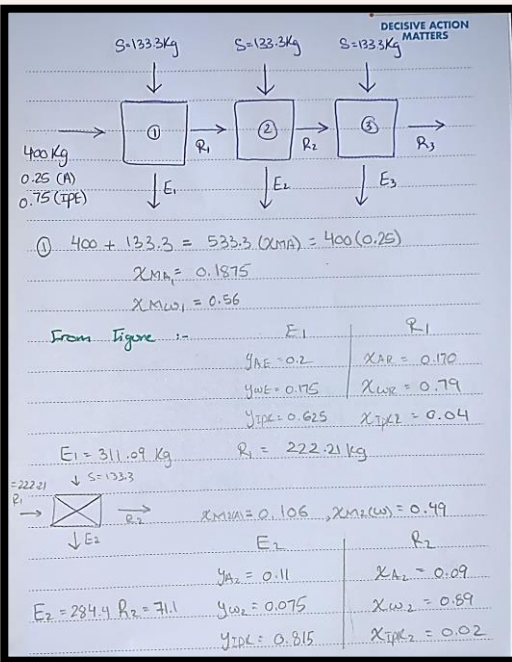 DECISIVE ACTION
MATTERS
S=133.3Kg S=133.3Kg S=133.3Kg
① ② ③
R₁ R₂ R₃
400 Kg
0.25 (A)
0.75 (IPE)
E₁ E₂ E₃
① 400 + 133.3 = 533.3 (XMA) = 400 (0.25)
XMA₁ = 0.1875
XMW₁ = 0.56
From Figure :-
E₁ R₁
yAE = 0.2 XAR = 0.170
ywE = 0.175 XWR = 0.79
yIPE = 0.625 XIPE = 0.04
E₁ = 311.09 Kg R₁ = 222.21 kg
=222.21 S=133.3
R₁ R₂ XM2(A) = 0.106 , XM2(W) = 0.49
E₂
E₂ R₂
yA₂ = 0.11 XA₂ = 0.09
E₂ = 284.4 R₂ = 71.1 yw₂ = 0.075 Xw₂ = 0.89
yIPE = 0.815 XIPE₂ = 0.02